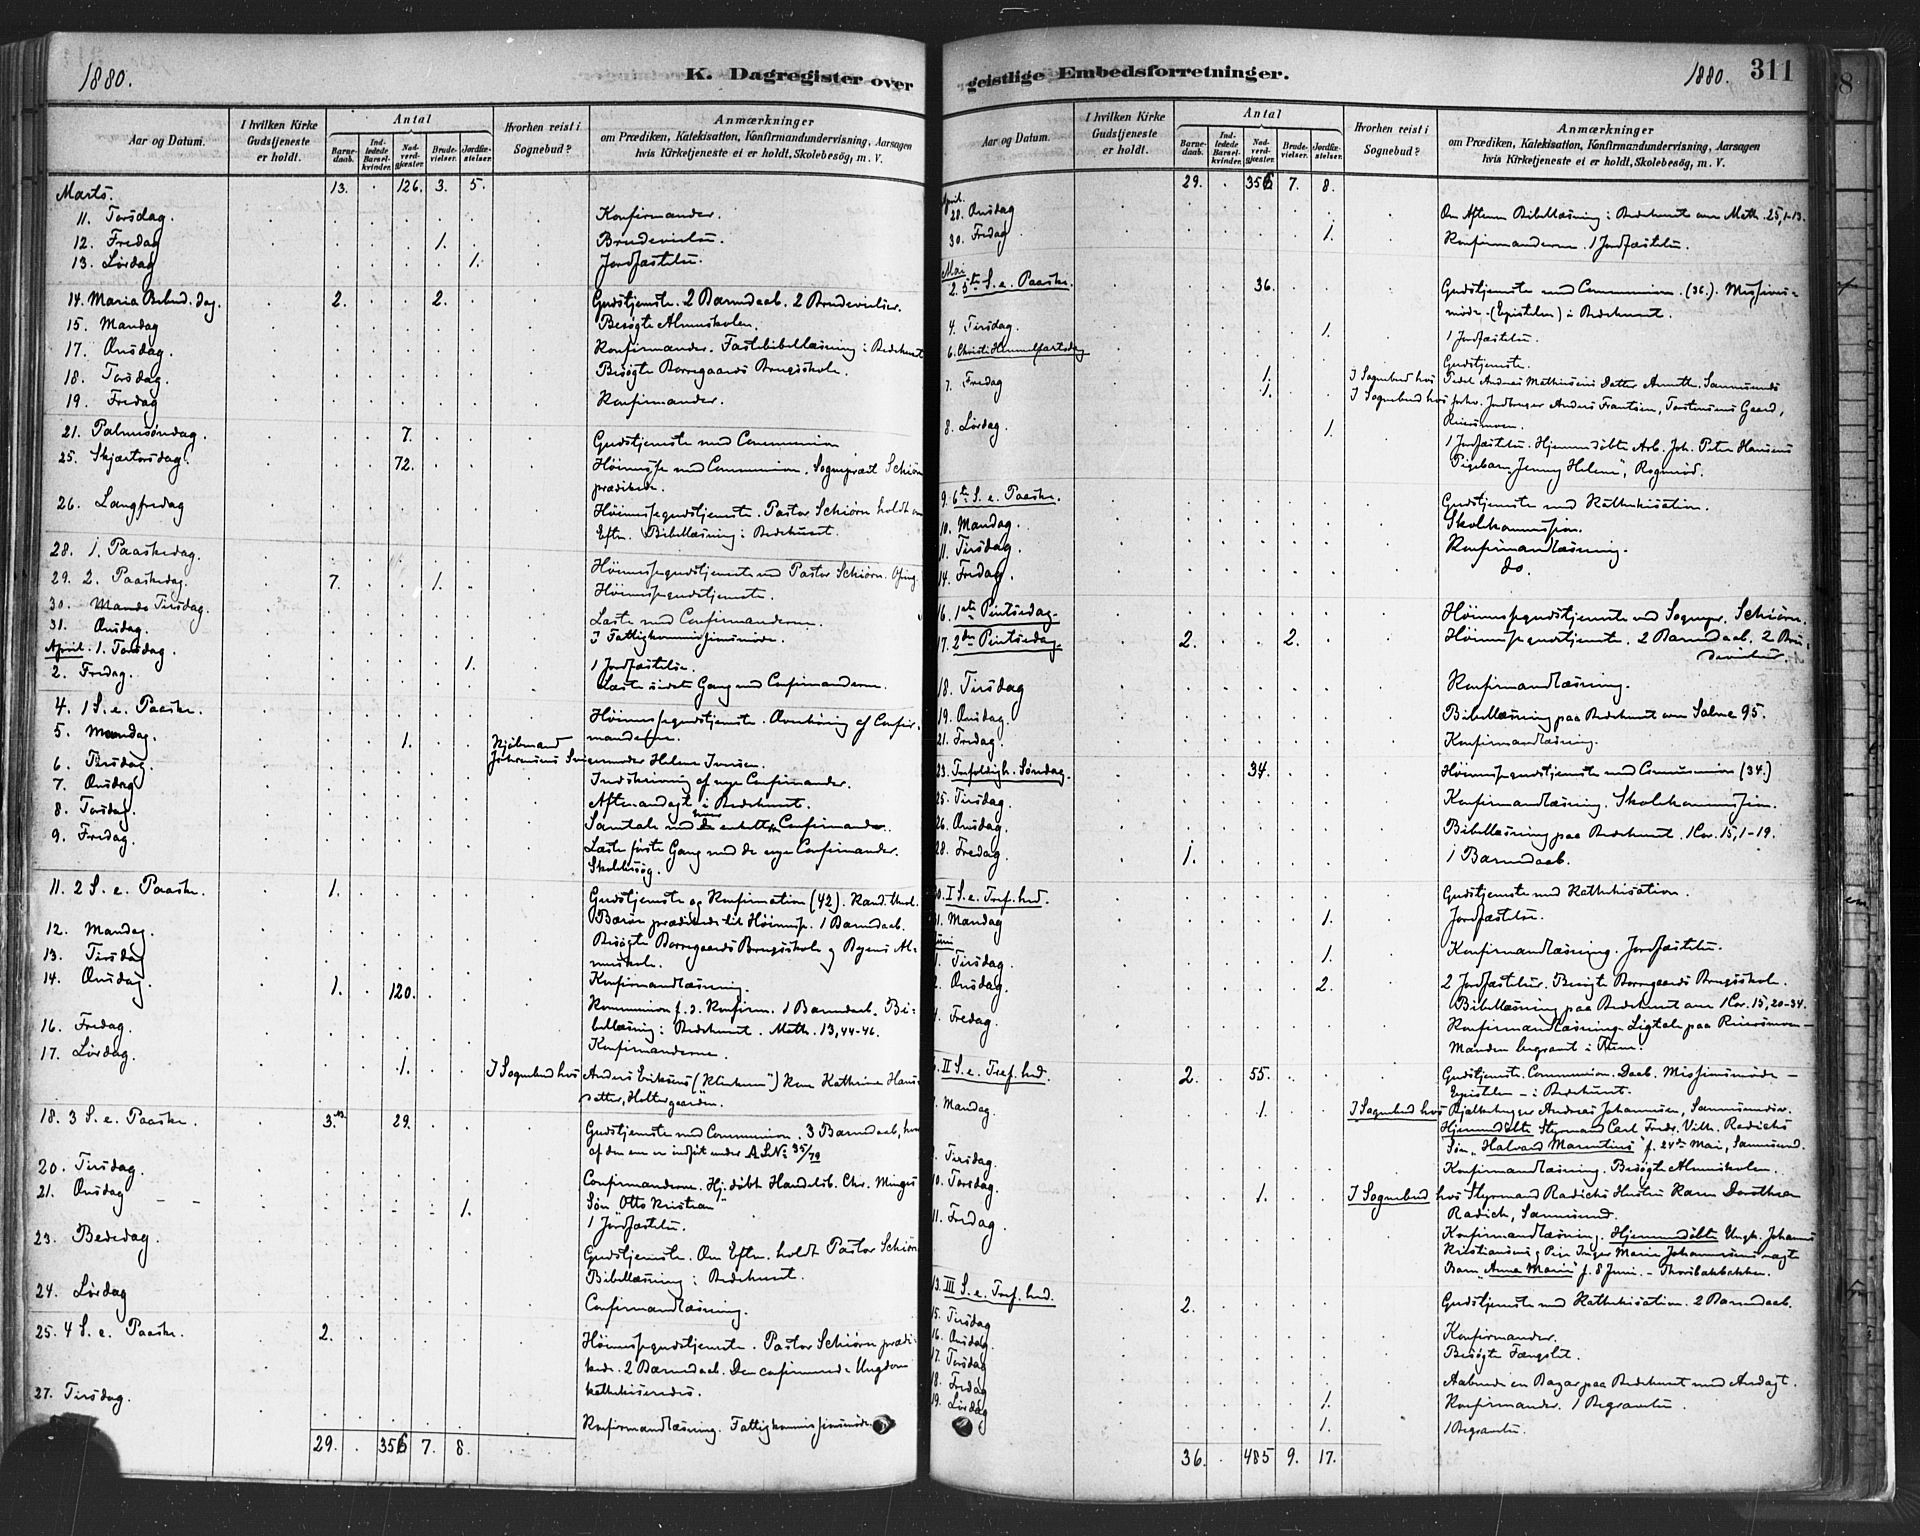 1880.
K. Dagregister over
Aar og Datum.
I hvilken Kirke Gudstjeneste er holdt.
Antal
Barne-daab.
Ind-ledede Barsel-kvinder.
Nad-verd-gjæster.
Brude-vielser.
Jordfæ-stelser.
Hvorhen reist i Sognebud?
Anmærkninger
om Prædiken, Katekisation, Konfirmandundervisning, Aarsagen
hvis Kirketjeneste ei er holdt, Skolebesøg, m. V.
Marts. 13. 126. 3. 5.
11. Torsdag. Konfirmander.
12. Fredag 1. Brudevielse.
13. Lørdag 1. Jordfæstelse.
14. Maria Bebud. dag. 2. 2. Gudstjeneste. 2 Barnedaab. 2 Brudevielser.
15. Mandag Besøgte Almueskolen.
17. Onsdag. Konfirmander. Fastebibellæsning i Bedehuset
18. Torsdag. Besøgte Borregaards Brugsskole.
19. Fredag Konfirmander.
21. Palmesøndag. 7. Gudstjeneste med Communion
25. Skjærtorsdag. 72. Høimesse med Communion. Sognepræst Schiørn
prædikede.
26. Langfredag Høimessegudstjeneste. Pastor Schiørn holdt om
Eftm. Bibellæsning i Bedehuset.
28. 1. Paaskedag. Høimessegudstjeneste ved Pastor Schiørn.
29. 2. Paaskedag. 7. 1. Høimessegudstjeneste.
30. Tirsdag. Læste med Confirmanderne.
31. Onsdag. I Fattigkommissionsmøde.
April. 1. Torsdag. 1. 1 Jordfæstelse.
2. Fredag. Læste sidste Gang med Confirmanderne.
4. 1 S. e. Paaske. Høimessegudstjeneste. Overhøring af Confir-
manderne.
5. Mandag. 1. Kjøbmand
Johannesens Svigermoder Helene Iversen.
6. Tirsdag. Indskrivning af nye Confirmander.
7. Onsdag Aftenandagt i Bedehuset.
8. Torsdag. Samtale med de enkelte Confirmander.
9. Fredag. Læste første Gang med de nye Confirmander.
Skolebesøg.
11. 2 S. e. Paaske. 1. Gudstjeneste og Konfirmation (42). Kand. theol.
prædikede til Høimesse. 1 Barnedaab.
12. Mandag. Besøgte Borregaards Brugsskole og Byens Al-
mueskole.
13. Tirsdag Konfirmandlæsning.
14. Onsdag. 1. 120. Kommunion f. d. Konfirm. 1 Barnedaab. Bi-
bellæsning i Bedehuset. Math. 13,44-46.
16. Fredag. Konfirmanderne.
17. Lørdag. 1. I Sognebud hos Anders Eriksens ("Klinkern") Kone Kathrine Hans-
datter, Holtergaarden.
18. 3 S. e. Paaske. 3. 29. Gudstjeneste med Communion. 3 Barnedaab, hvor
af den ene er indført under A L No 35/79
20. Tirsdag. Confirmanderne. Hj.døbt Handelsb. Chr. Minges
21. Onsdag 1. Søn "Otto Kristian"
1 Jordfæstelse.
23. Bededag. Gudstjeneste. Om Eftm. holdt Pastor Schiørn
Bibellæsning i Bedehuset.
24. Lørdag Confirmandlæsning.
25. 4 S. e. Paaske. 2. Høimessegudstjeneste. Pastor Schiørn prædi-
kede. 2 Barnedaab. Den confirmerede Ungdom
kathekiseredes.
27. Tirsdag. Konfirmandlæsning. Fattigkommissionsmøde.
29. 356 7. 8.
geistlige Embedsforretninger.
1880. 311
Aar og Datum.
I hvilken Kirke Gudstjeneste er holdt.
Antal
Barne-daab.
Ind-ledede Barsel-kvinder.
Nad-verd-gjæster.
Brude-vielser.
Jordfæ-stelser.
Hvorhen reist i Sognebud?
Anmærkninger
om Prædiken, Katekisation, Konfirmandundervisning, Aarsagen
hvis Kirketjeneste ei er holdt, Skolebesøg, m. V.
29. 356 7. 8.
April.
28. Onsdag Om Aftenen Bibellæsning i Bedehuset over Math. 25,1-13.
30. Fredag. 1. Konfirmanderne. 1 Jordfæstelse.
Mai
2. 5te S. e. Paaske. 36. Gudstjeneste med Communion. (36.). Missions-
møde (Epistelen) i Bedehuset.
4. Tirsdag. 1. 1 Jordfæstelse.
6. Christi Himmelfartsdag Gudstjeneste.
7. Fredag 1. I Sognebud hos Peder Andreas Mathisens Datter Annette. Sannesund
1. I Sognebud hos forhv. Jordbruger Anders Frantsen, Torstensens Gaard,
8. Lørdag. 1. 1 Jordfæstelse. Hjemmedøbte Arb. Joh. Peter Hansens
Pigebarn "Jenny Helene",
9. 6te S. e. Paaske. Gudstjeneste med Kathekisation.
10. Mandag. Skolekommission.
11. Tirsdag. Konfirmandlæsning.
14. Fredag. do.
16. 1ste Pintsedag. Høimessegudstjeneste ved Sognepr. Schiørn.
17. 2den Pintsedag. 2. 2. Høimessegudstjeneste. 2 Barnedaab. 2 Bru-
devielser.
18. Tirsdag Konfirmandlæsning.
19. Onsdag. Bibellæsning paa Bedehuset over Salme 95.
21. Fredag. Konfirmandlæsning.
23. Trefoldigh. Søndag. 34. Høimessegudstjeneste med Communion (34.)
25. Tirsdag. Konfirmandlæsning. Skolekommission.
26. Onsdag. Bibellæsning paa Bedehuset. 1Cor. 15,1-19.
28. Fredag. 1. 1 Barnedaab.
30. I S. e. Tref.hed. Gudstjeneste med Kathekisation.
31. Mandag 1. Jordfæstelse.
Juni
1. Tirsdag. 1. Konfirmandlæsning. Jordfæstelse.
2. Onsdag. 2. 2 Jordfæstelser. Besøgte Borregaards Brugsskole.
Bibellæsning paa Bedehuset over 1Cor. 15,20-34.
4. Fredag. Konfirmandlæsning.
6. II S. e. Tref.hed. 2. 55. Gudstjeneste. Communion. Daab. Missionsmøde -
Epistelen - i Bedehuset.
7. Mandag. 1. I Sognebud hos Andreas Johannesen, Sannesund.
Hjemmedøbte Styrmand Carl Fredr. Vilh. Radichs
Søn "Halvard Marentius" f. 24de Mai, Sannesund.
8. Tirsdag. Konfirmandlæsning. Besøgte Almueskolen.
10. Torsdag. 1. I Sognebud hos Styrmand Radichs Hustru Karen Dorothea
Radich, Sannesund.
11. Fredag. Konfirmandlæsning. Hjemmedøbte Ungk. Johannes
Kristiansens og Pige Inger Marie Johannesens uægte
Barn "Anna Marie" f. 8 Juni.
13. III S. e. Tref.hed. 2. Gudstjeneste med Kathekisation. 2 Barnedaab.
15. Tirsdag Konfirmander.
16. Onsdag. Besøgte Fængslet.
17. Torsdag Aabnede en Bazar paa Bedehuset med Andagt.
18. Fredag 1. Konfirmander. 1 Begravelse.
19. Lørdag 1. 1 Begravelse.
36. 485 9. 17.